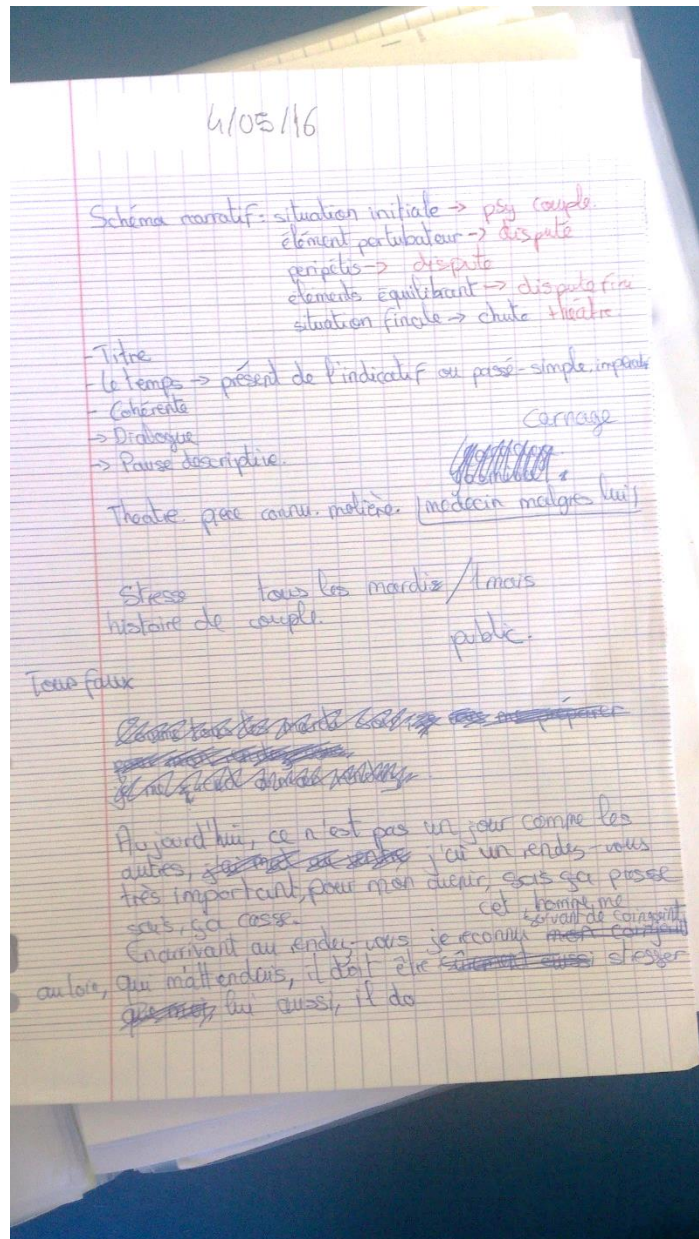 4/05/16
Schéma narratif : situation initiale → psy couple.
élément pertubateur → dispute
peripétis → dispute
éléments équilibrant → dispute fini
situation finale → chute théâtre.
- Titre
- Le temps → présent de l'indicatif ou passé-simple, imparfait
- Cohérente
→ Dialogue
→ Pause descriptive.
Carnage
Theatre. piece connu. molière. médecin malgres lui
Stress tous les mardis / 1 mois
histoire de couple.
public.
Tous faux
Aujourd'hui, ce n'est pas un jour comme les
autres, j'ai un rendez-vous
très important, pour mon avenir, sois ça passe
sois, ça casse.
cet homme me
servant de
En arrivant au rendez-vous je reconnu
au loin, qui m'attendais, il doit être stesser
lui aussi, il do